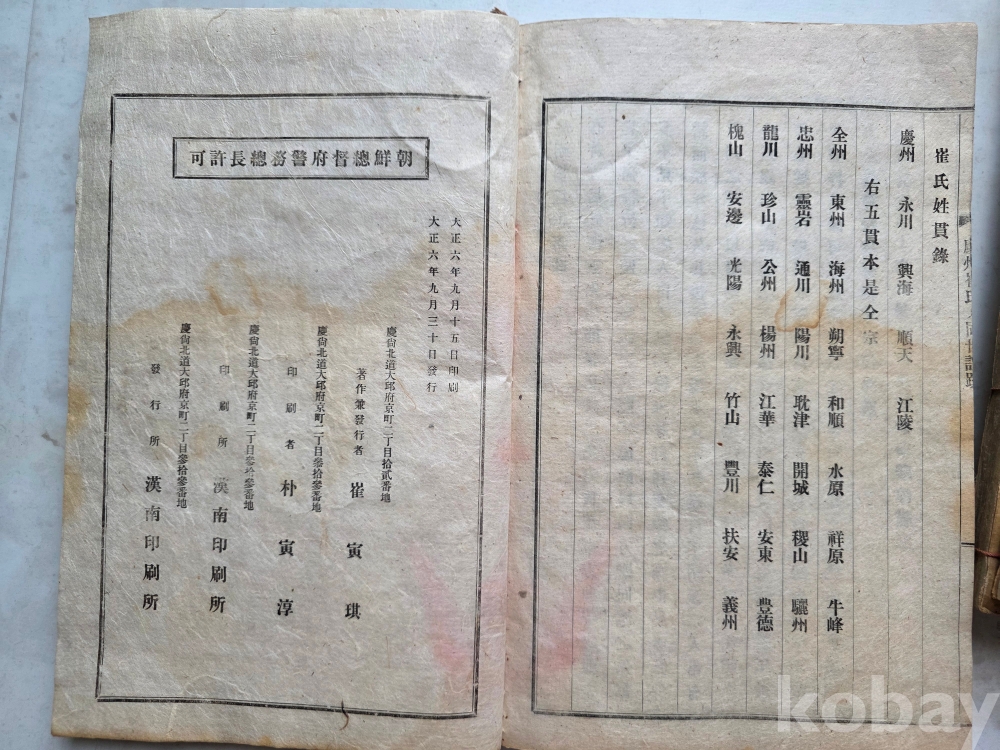 崔氏姓貫錄
慶州 永川 興海 順天 江陵
右五貫本是仝宗
全州 東州 海州 朔寧 和順 水原 祥原 牛峰
忠州 靈岩 通川 陽川 耽津 開城 稷山 驪州
龍川 珍山 公州 楊州 江華 泰仁 安東 豊德
槐山 安邊 光陽 永興 竹山 豐川 扶安 義州
朝鮮總督府警務總長許可
大正六年九月十五日印刷
大正六年九月三十日發行
慶尙北道大邱府京町二丁目拾貳番地
著作兼發行者 崔寅琪
慶尙北道大邱府京町二丁目參拾參番地
印刷者 朴寅淳
慶尙北道大邱府京町二丁目參拾參番地
印刷所 漢南印刷所
慶尙北道大邱府京町二丁目參拾參番地
發行所 漢南印刷所
kobay